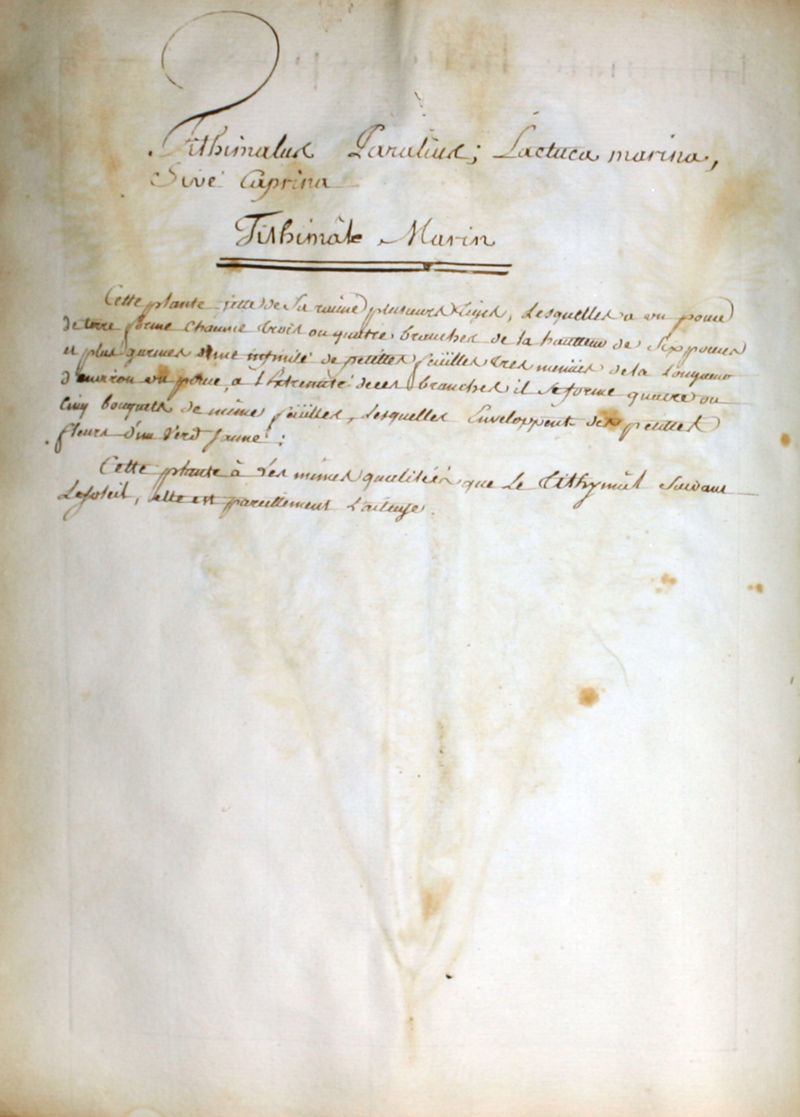 Tithimalus Paralius; Lactuca marina,
Sive Caprina
Tithimâle Marin
Cette plante jette de Sa racine plusieurs tiges, Lesquelles a un pouce
de terre forme Chaume trois ou quatre branches de la hauteur de Six pouces
et plus garnies d'une infinité de petittes feüilles tres menües de la Longueur
d'environ un pouce, a l'Extremité de ces branches il Se forme quatre ou
Cinq bouquets de même feüilles, Lesquelles Enveloppent des petittes
fleurs d'un Verd Jaune;
Cette plante à Les mêmes qualitées que Le tithymâl Suivant
Le Soleil, elle est pareillement Laiteuse.